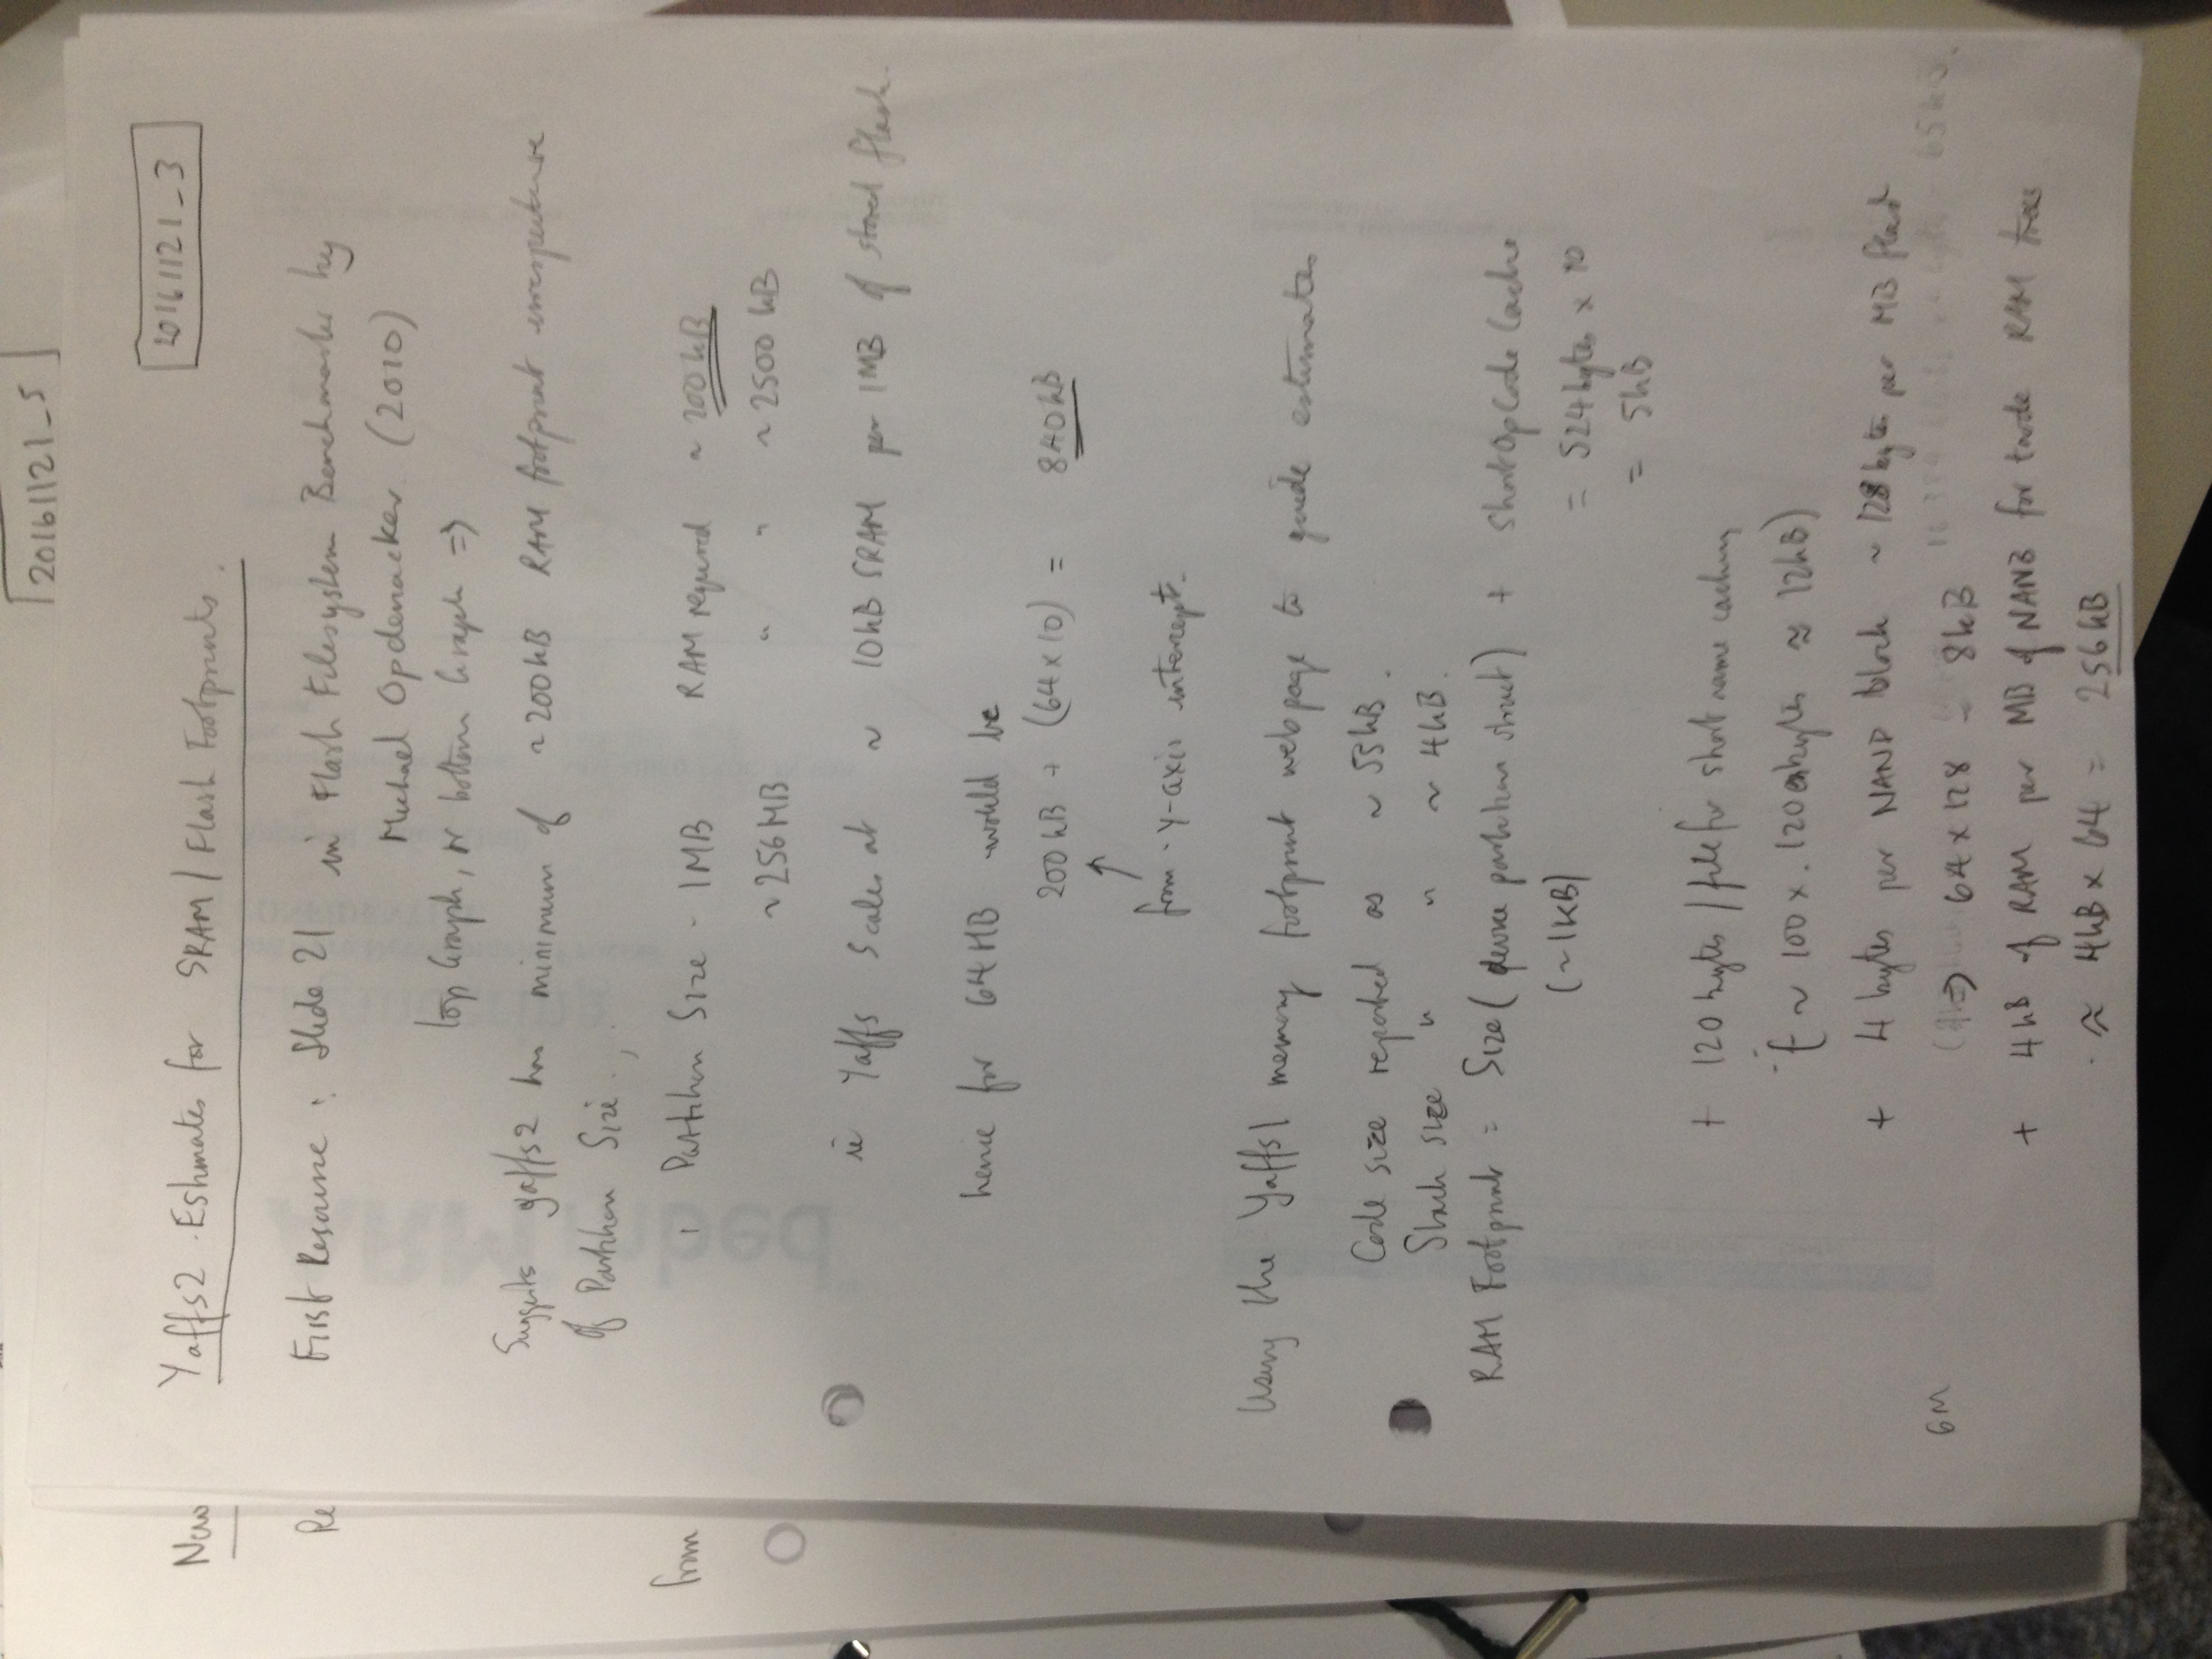 20161121_5
20161121_3
Yaffs2 Estimates for SRAM / Flash Footprints.
First Resource : Slide 21 in Flash Filesystem Benchmarks by
Michael Opdenacker (2010)
top Graph, or bottom Graph =>
Suggests yaffs2 has minimum of ~200kB RAM footprint irrespective
of Partition Size.
Partition Size - 1MB RAM required ~ 200kB
~256MB " " ~2500 kB
ie Yaffs Scales at ~ 10kB SRAM per 1MB of stored flash.
hence for 64MB would be
200kB + (64x10) = 840kB
↑
from y-axis intercept.
Using the Yaffs1 memory footprint webpage to guide estimates
Code size reported as ~ 53kB.
Stack size " " ~ 4kB.
RAM Footprint = Size (device partition struct) + Short Op Code Cache
(~1KB) = 524 bytes x 10
= 5kB
+ 120 bytes / file for short name caching
(~ 100 x 120 bytes ≈ 12kB)
+ 4 bytes per NAND block ~ 128 bytes per MB flash
=> 64 x 128 - 8kB
+ 4kB of RAM per MB of NAND for RAM trees
≈ 4kB x 64 = 256kB
Re
from
6M